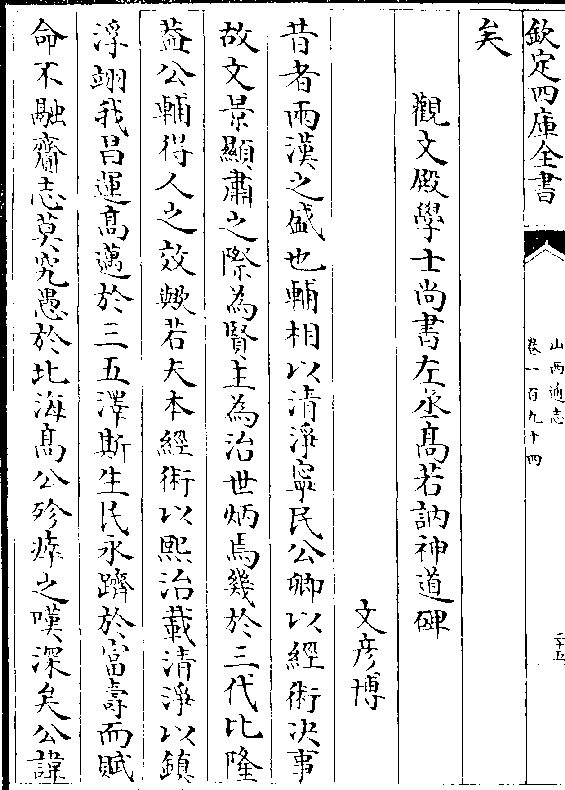 欽定四庫全書
山西通志
卷一百九十四
二十五
矣
觀文殿學士尚書左丞髙若訥神道碑
文彦博
昔者兩漢之盛也輔相以清淨寧民公卿以經術决事
故文景顯肅之際為賢主為治世炳焉幾於三代比隆
益公輔得人之效歟若夫本經術以熙治載清淨以鎮
浮翊我昌運髙邁於三五澤斯生民永躋於富壽而賦
命不融齎志莫究愚於北海髙公殄瘁之嘆深矣公諱